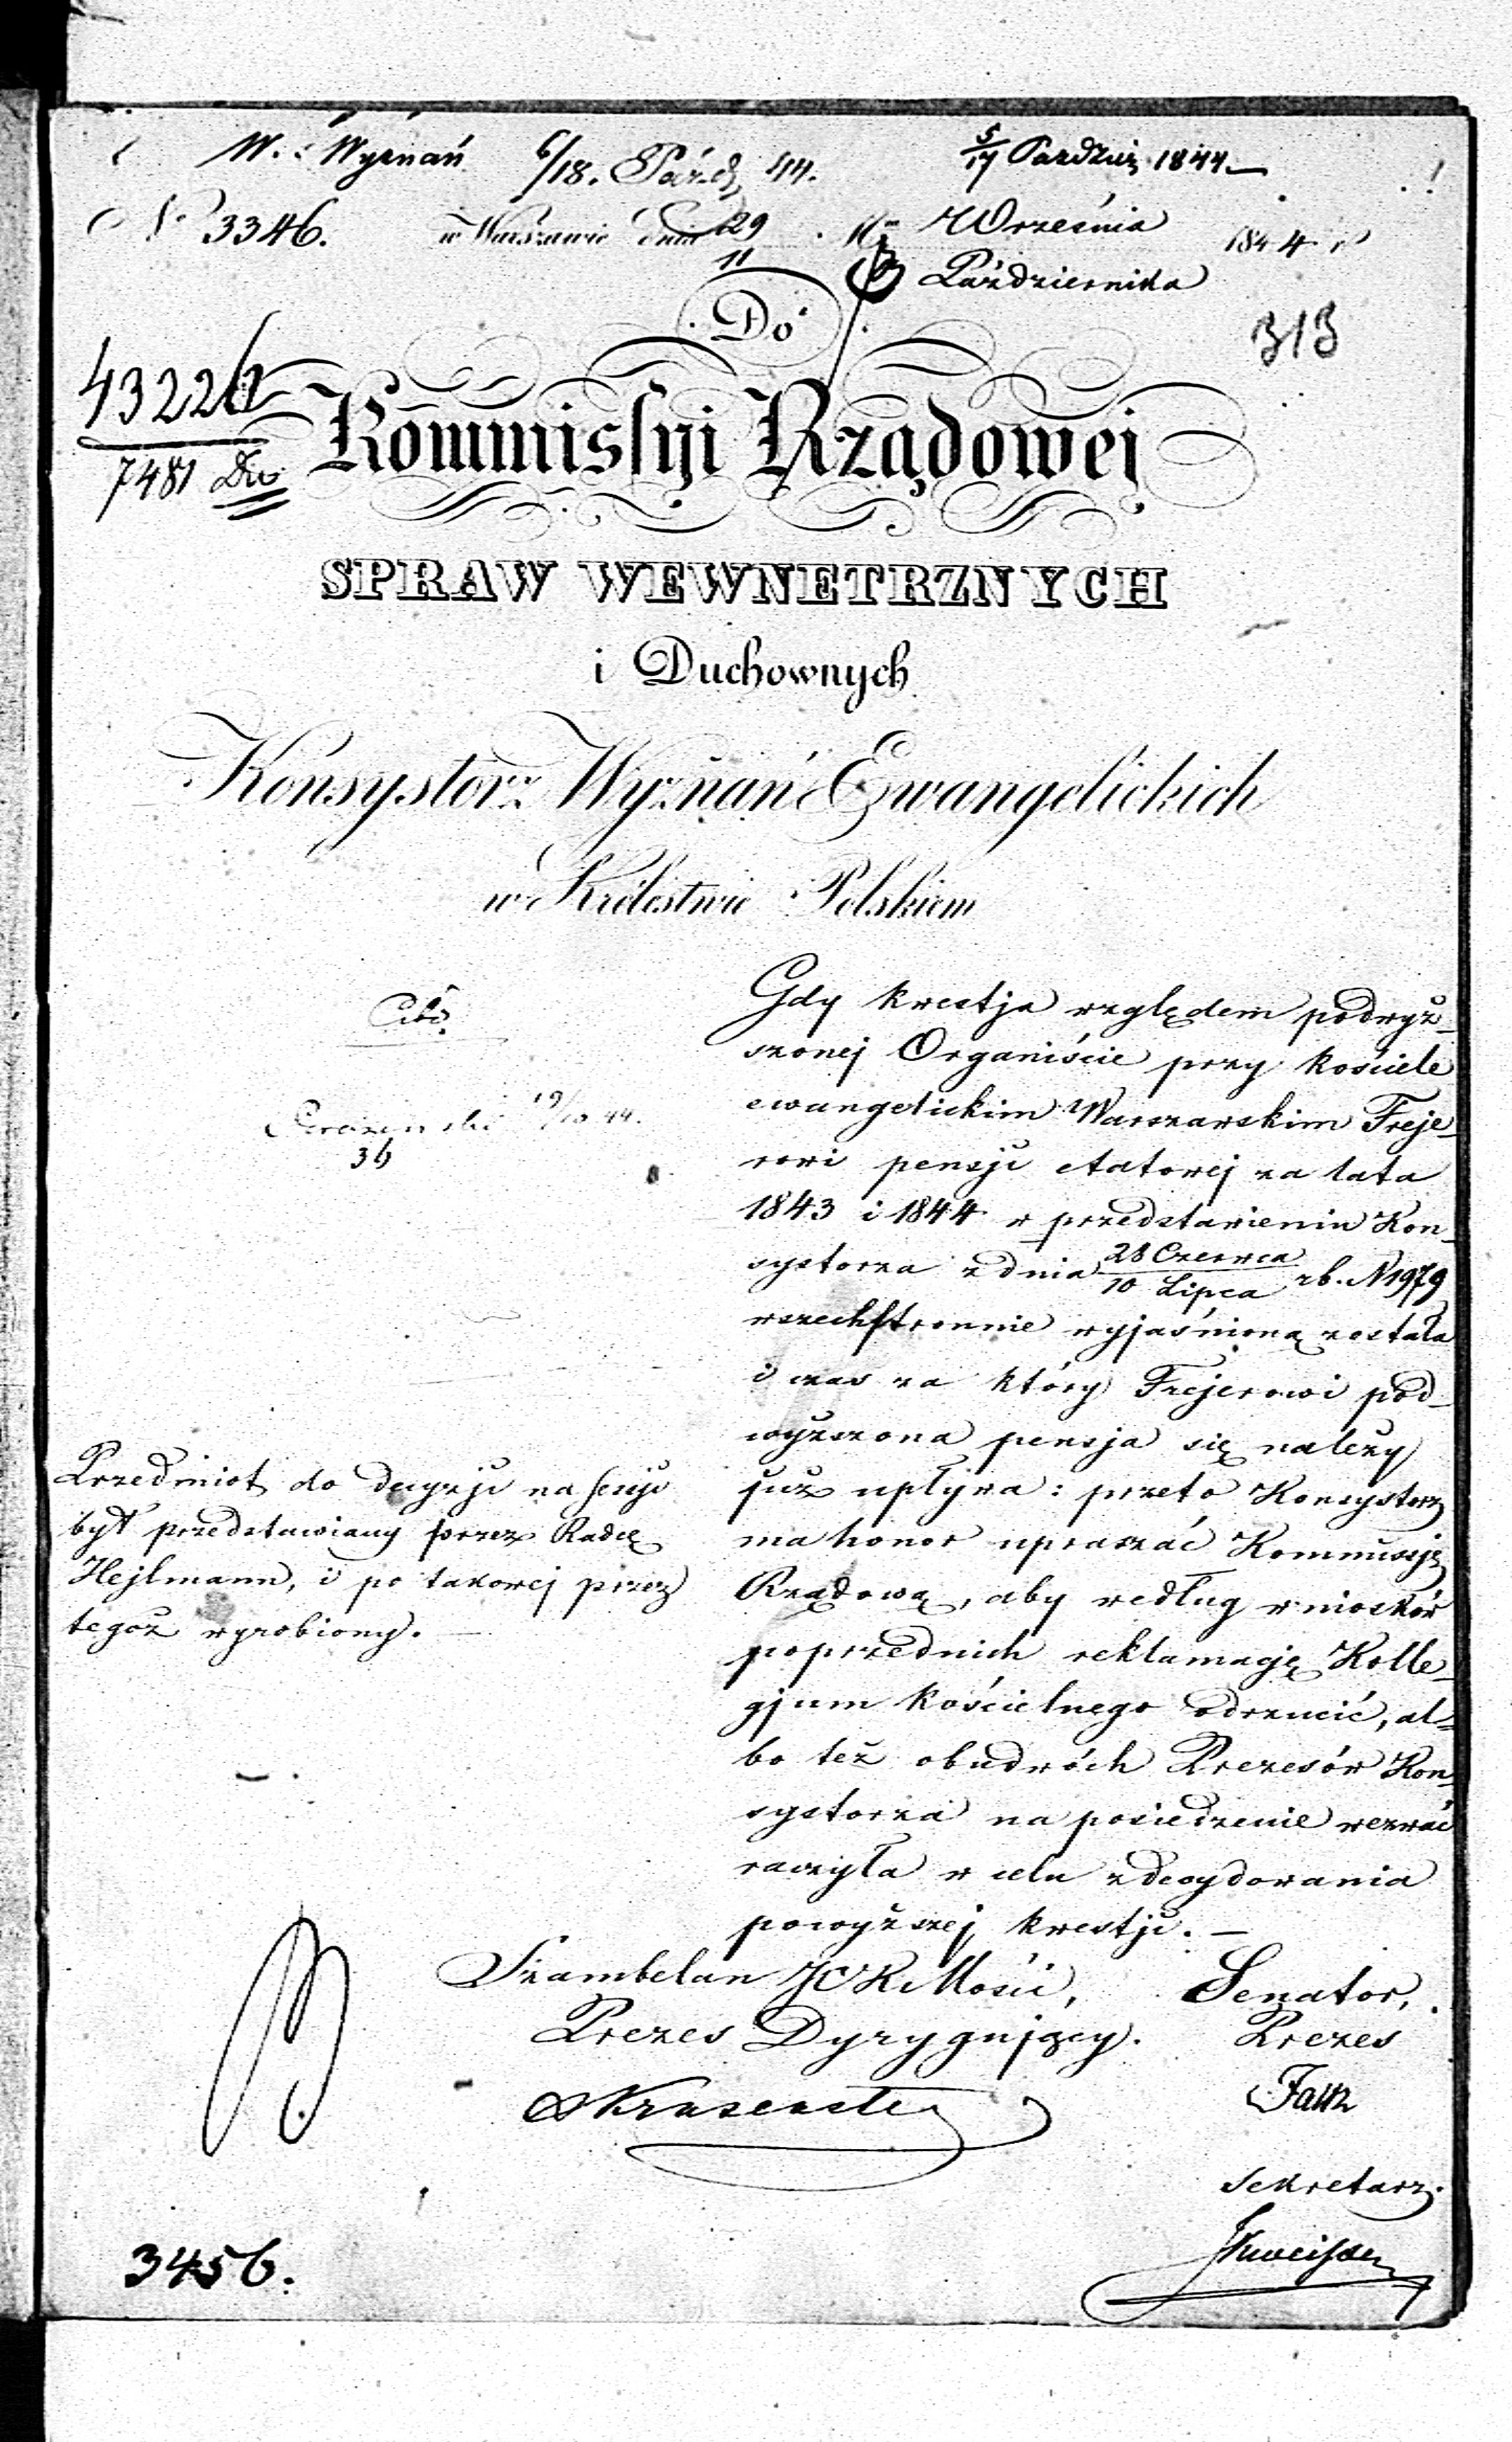 W. Wyznań 6/18. Paźdz 44. 5/17 Paździer 1844.—
No 3346. w Warszawie dnia 29 Września 1844 r.
11 Października
Do
313
43226
7481
Kommissyi Rządowej
SPRAW WEWNETRZNYCH
i Duchownych
Konsystorz Wyznań Ewangelickich
w Królestwie Polskiem
Gdy kwestja względem podwyż-
szonej Organiście przy kościele
ewangelickim Warszawskim Freje-
rowi pensji etatowej za lata
1843 i 1844 w przedstawieniu Kon-
systorza z dnia 28 Czerwca / 10 Lipca rb. N 1979
wszechstronnie wyjaśnioną została
i czas za który Frejerowi pod-
wyższona pensja się należy
już upływa: przeto Konsystorz
ma honor upraszać Kommissję
Rządową, aby według wniosków
poprzednich reklamację Kolle-
gjum kościelnego odrzucić, al-
bo też obudwóch Prezesów Kon-
systorza na posiedzenie wezwać
raczyła w celu zdecydowania
powyższej kwestji. —
19/10 44.
36
Przedmiot do decyzji na sessji
był przedstawiany przez Radcę
Hejlmann, i po takowej przez
tegoż wyrobiony. —
Szambelan JCKMości, Senator,
Prezes Dyrygujący. Prezes
Sekretarz.
3456.